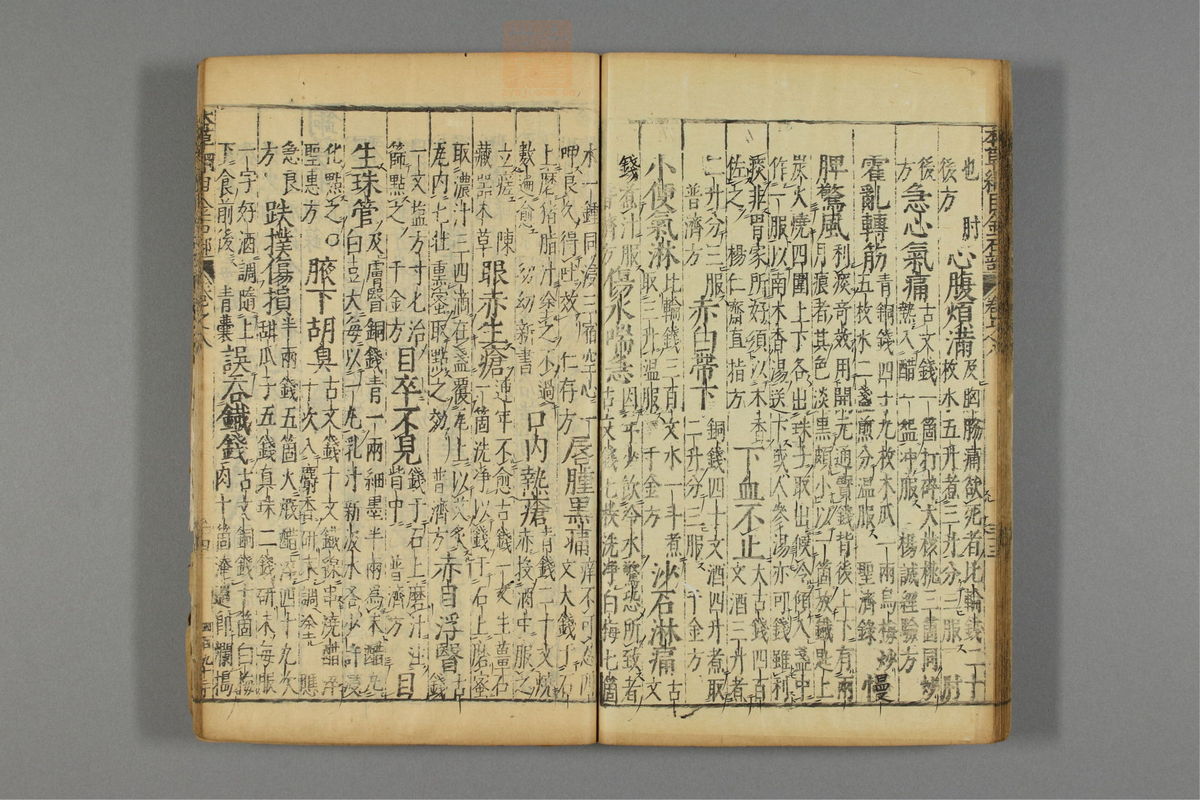 本草綱目金石部 卷之八
也 肘
後方
心腹煩滿
及胸脇痛欲死者比輪錢二十
枚水五升煮三升分三服 肘
後
方
急心氣痛
古文錢一箇打碎大核桃三箇同炒
熱入醋一盌冲服 楊誠經驗方
霍亂轉筋
青銅錢四十九枚木瓜一兩烏梅炒
五枚水二盞煎分温服 聖濟錄
慢
脾驚風
利痰奇效用開元通寳錢背後上下有兩
月痕者其色淡黑頗小以一箇放鐵匙上
炭火燒四圍上下各出珠子取出候冷傾入盞中
作一服以南木香湯送下或人參湯亦可錢雖利
痰非胃家所好須以木香
佐之 楊仁齋直指方
下血不止
大古錢四百
文酒三升煮
二升分三服
普濟方
赤白帶下
銅錢四十文酒四升煮取
二升分三服 千金方
小便氣淋
比輪錢三百文水一斗煮
取三升温服 千金方
沙石淋痛
古
文
錢煮汁服
普濟方
傷水喘急
因年少飲冷水驚恐所致者
古文錢七枚洗淨白梅七箇
水一鍾同浸三宿空心一
呷良久得吐效 仁存方
唇腫黑痛
痒不可忍四
文大錢于石
上磨猪脂汁塗之不過
數遍愈 幼幼新書
口內熱瘡
青錢二十文燒
赤投酒中服之
立瘥 陳
藏器本草
眼赤生瘡
連年不愈古錢一文生薑
一箇洗淨以錢于石上磨蜜
取濃汁三四滴在盞覆瓦上以艾炙
瓦內七往熏蜜取點之效 普濟方
赤目浮翳
古
錢
一文塩方寸匕治
篩點之 千金方
目卒不見
錢于石上磨汁注
眥中 普濟方
目
生珠管
及膚翳銅錢青一兩細墨半兩為末醋丸
白豆大每以一丸乳汁新汲水各少許浸
化點之○
聖惠方
腋下胡臭
古文錢十文鐵線串燒醋淬
十次入麝香研末調塗 應
急良
方
跌撲傷損
半兩錢五箇火煅醋淬四十九次
甜瓜子五錢真珠二錢研末每服
一字好酒調隨上
下食前後 青囊
誤吞鐵錢
古文銅錢十箇白梅
肉十箇淹過即爛搗
本草綱目金石部 卷之八